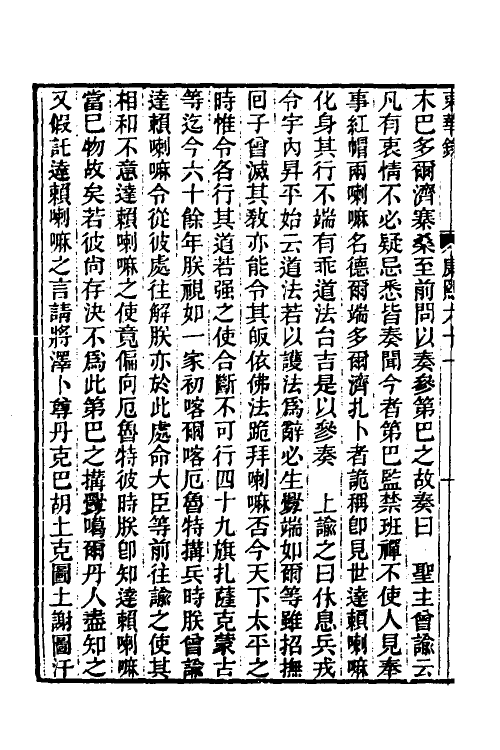 東華錄 康熙六十一 十
木巴多爾濟寨桑至前問以奏參第巴之故奏曰 聖主曾諭云
凡有衷情不必疑忌悉皆奏聞今者第巴監禁班禪不使人見奉
事紅帽兩喇嘛名德爾端多爾濟扎卜者詭稱卽見世達賴喇嘛
化身其行不端有乖道法台吉是以參奏 上諭之曰休息兵戎
令宇內昇平始云道法若以護法爲辭必生釁端如爾等雖招撫
回子曾滅其教亦能令其皈依佛法跪拜喇嘛否今天下太平之
時惟令各行其道若强之使合斷不可行四十九旗扎薩克蒙古
等迄今六十餘年朕視如一家初喀爾喀厄魯特搆兵時朕曾諭
達賴喇嘛令從彼處往解朕亦於此處命大臣等前往諭之使其
相和不意達賴喇嘛之使竟偏向厄魯特彼時朕卽知達賴喇嘛
當巳物故矣若彼尙存決不爲此第巴之搆釁噶爾丹人盡知之
又假託達賴喇嘛之言請將澤卜尊丹克巴胡土克圖土謝圖汗